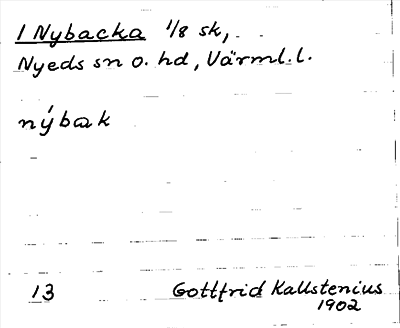 1 Nybacka 1/8 sk,
Nyeds sn o. hd, Värml. l.
nýbak
13 Gottfrid Kallstenius
1902